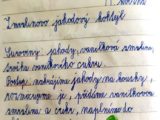 Zmrzlinový jahodový koktejl
Suroviny: jahody, vanilková zmrzlina,
trocha vanilkového cukru.
Postup: nakrájíme jahody na kousky,
rozmixujeme je, přidáme vanilkovou
zmrzlinu a cukr, naplníme do